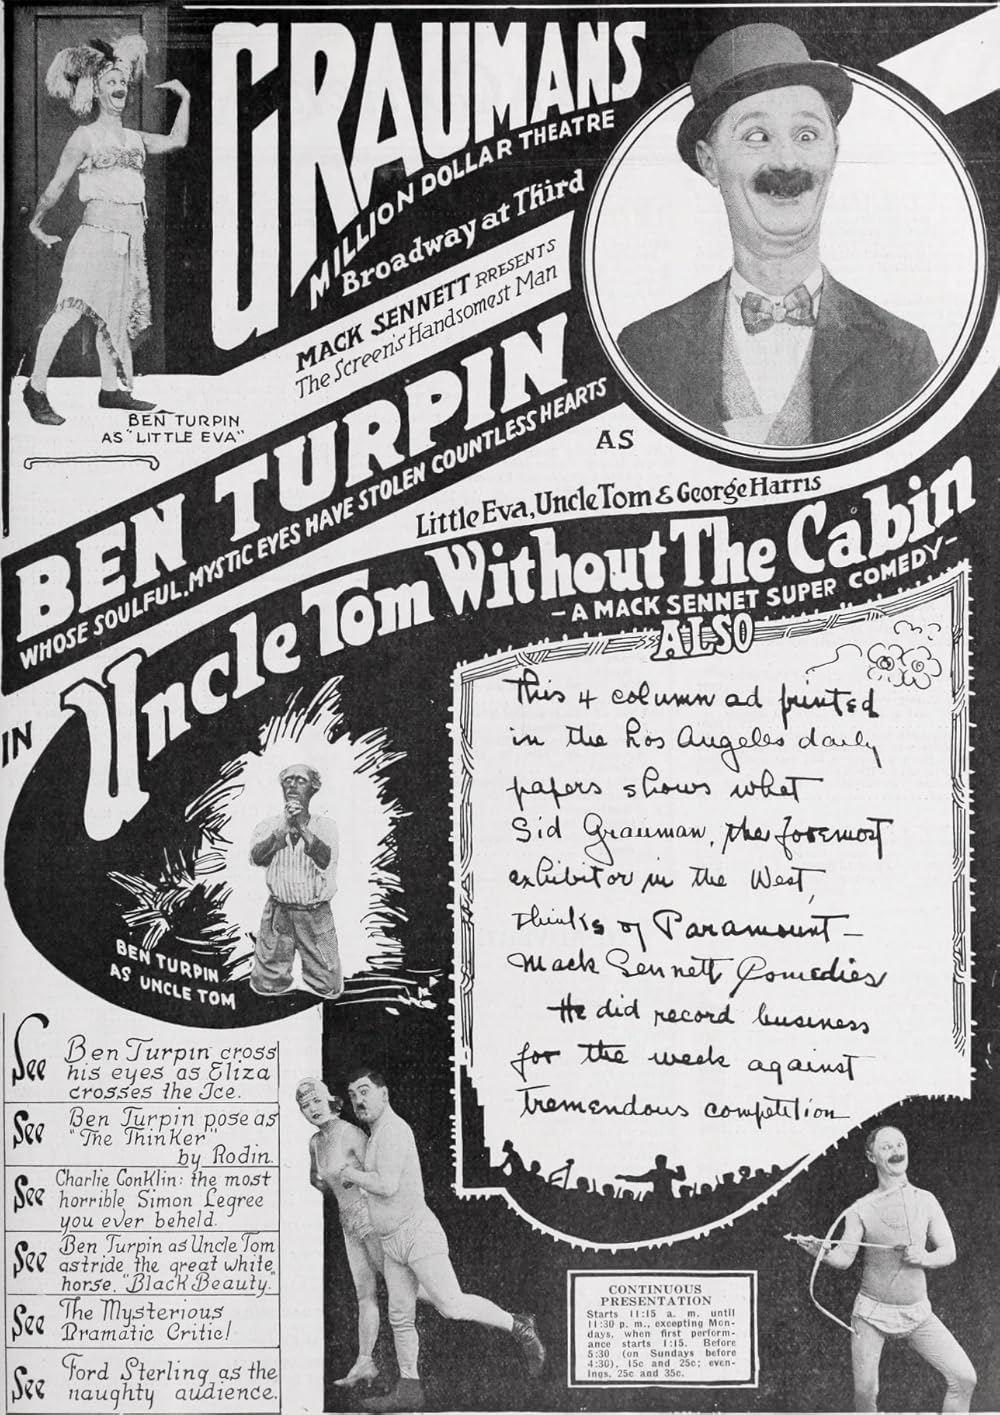 GRAUMANS
MILLION DOLLAR THEATRE
Broadway at Third
MACK SENNETT RRESENTS
The Screen's Handsomest Man
BEN TURPIN
WHOSE SOULFUL, MYSTIC EYES HAVE STOLEN COUNTLESS HEARTS
BEN TURPIN
AS "LITTLE EVA"
AS
Little Eva, Uncle Tom & George Harris
IN
Uncle Tom Without The Cabin
- A MACK SENNET SUPER COMEDY-
ALSO
This 4 column ad printed
in the Los Angeles daily
papers shows what
Sid Grauman, the foremost
exhibitor in the West,
thinks of Paramount-
Mack Sennett Comedies
He did record business
for the week against
tremendous competition
BEN TURPIN
AS UNCLE TOM
See Ben Turpin cross
his eyes as Eliza
crosses the Ice.
See Ben Turpin pose as
"The Thinker"
by Rodin.
See Charlie Conklin: the most
horrible Simon Legree
you ever beheld.
See Ben Turpin as Uncle Tom
astride the great white
horse. "Black Beauty."
See The Mysterious
Dramatic Critic!
See Ford Sterling as the
naughty audience.
CONTINUOUS
PRESENTATION
Starts 11:15 a. m. until
11:30 p. m., excepting Mon-
days, when first perform-
ance starts 1:15. Before
5:30 (on Sundays before
4:30), 15c and 25c; even-
ings, 25c and 35c.